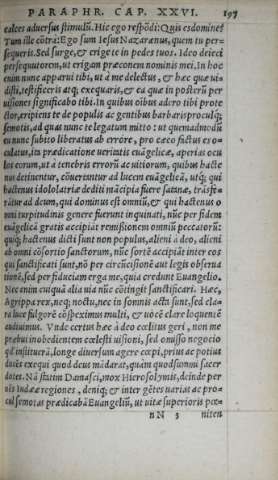 PARAPHR. CAP. XXVI. 197
calces aduersus stimulũ. Hic ego respõdi: Quis es domine?
Tum ille cõtra: Ego sum Iesus Nazaræus, quem tu per-
sequeris. Sed surge, & erige te in pedes tuos. Ideo deieci
persequutorem, ut erigam præconem nominis mei. In hoc
enim nunc apparui tibi, ut à me delectus, & hæc quæ ui-
disti, testificeris atq; exequaris, & ea quæ in posterũ per
uisiones significabo tibi. In quibus oĩbus adero tibi prote
ctor, eripiens te de populis ac gentibus barbaris procul q̃;
semotis, ad quas nunc te legatum mitto: ut quemadmodũ
tu nunc subito liberatus ab errore, pro cæco factus es o-
culatus, ita prædicatione ueritatis euãgelicæ, aperias ocu
los eorum, ut à tenebris errorũ ac uitiorum, quibus hacte
nus detinentur, cõuertantur ad lucem euãgelicã, utq; qui
hactenus idololatriæ dediti mãcipia fuere satanæ, trãsfe-
rãtur ad deum, qui dominus est omniũ, & qui hactenus o
mni turpitudinis genere fuerunt inquinati, nũc per fidem
euãgelicã gratis accipiãt remissionem omniũ peccatorũ:
quiq; hactenus dicti sunt non populus, alieni à deo, alieni
ab omni cõsortio sanctorum, nũc sortẽ accipiãt inter eos
qui sanctificati sunt, nõ per circũcisionẽ aut legis obserua
tionẽ, sed per fiduciam erga me, quia credunt Euangelio.
Nec enim cuiquã alia uia nũc cõtingit sanctificari. Hæc,
Agrippa rex, neq; noctu, nec in somnis acta sunt, sed cla-
ra luce fulgorẽ cõspeximus multi, & uocẽ clare loquentẽ
audiuimus. Vnde certus hæc à deo cœlitus geri, non me
præbui inobedientem cœlesti uisioni, sed omisso negocio
qđ instituerã, longe diuersum agere cœpi, prius ac potius
ducẽs exequi quod deus mãdarat, quàm quod summi sacer
dotes. Nã statim Damasci, mox Hierosolymis, deinde per
oẽs Iudææ regiones, deniq; & inter gẽtes uarias ac pro-
cul semotas prædicabã Euangeliũ, ut uitæ superioris pœ-
n N 3 niten